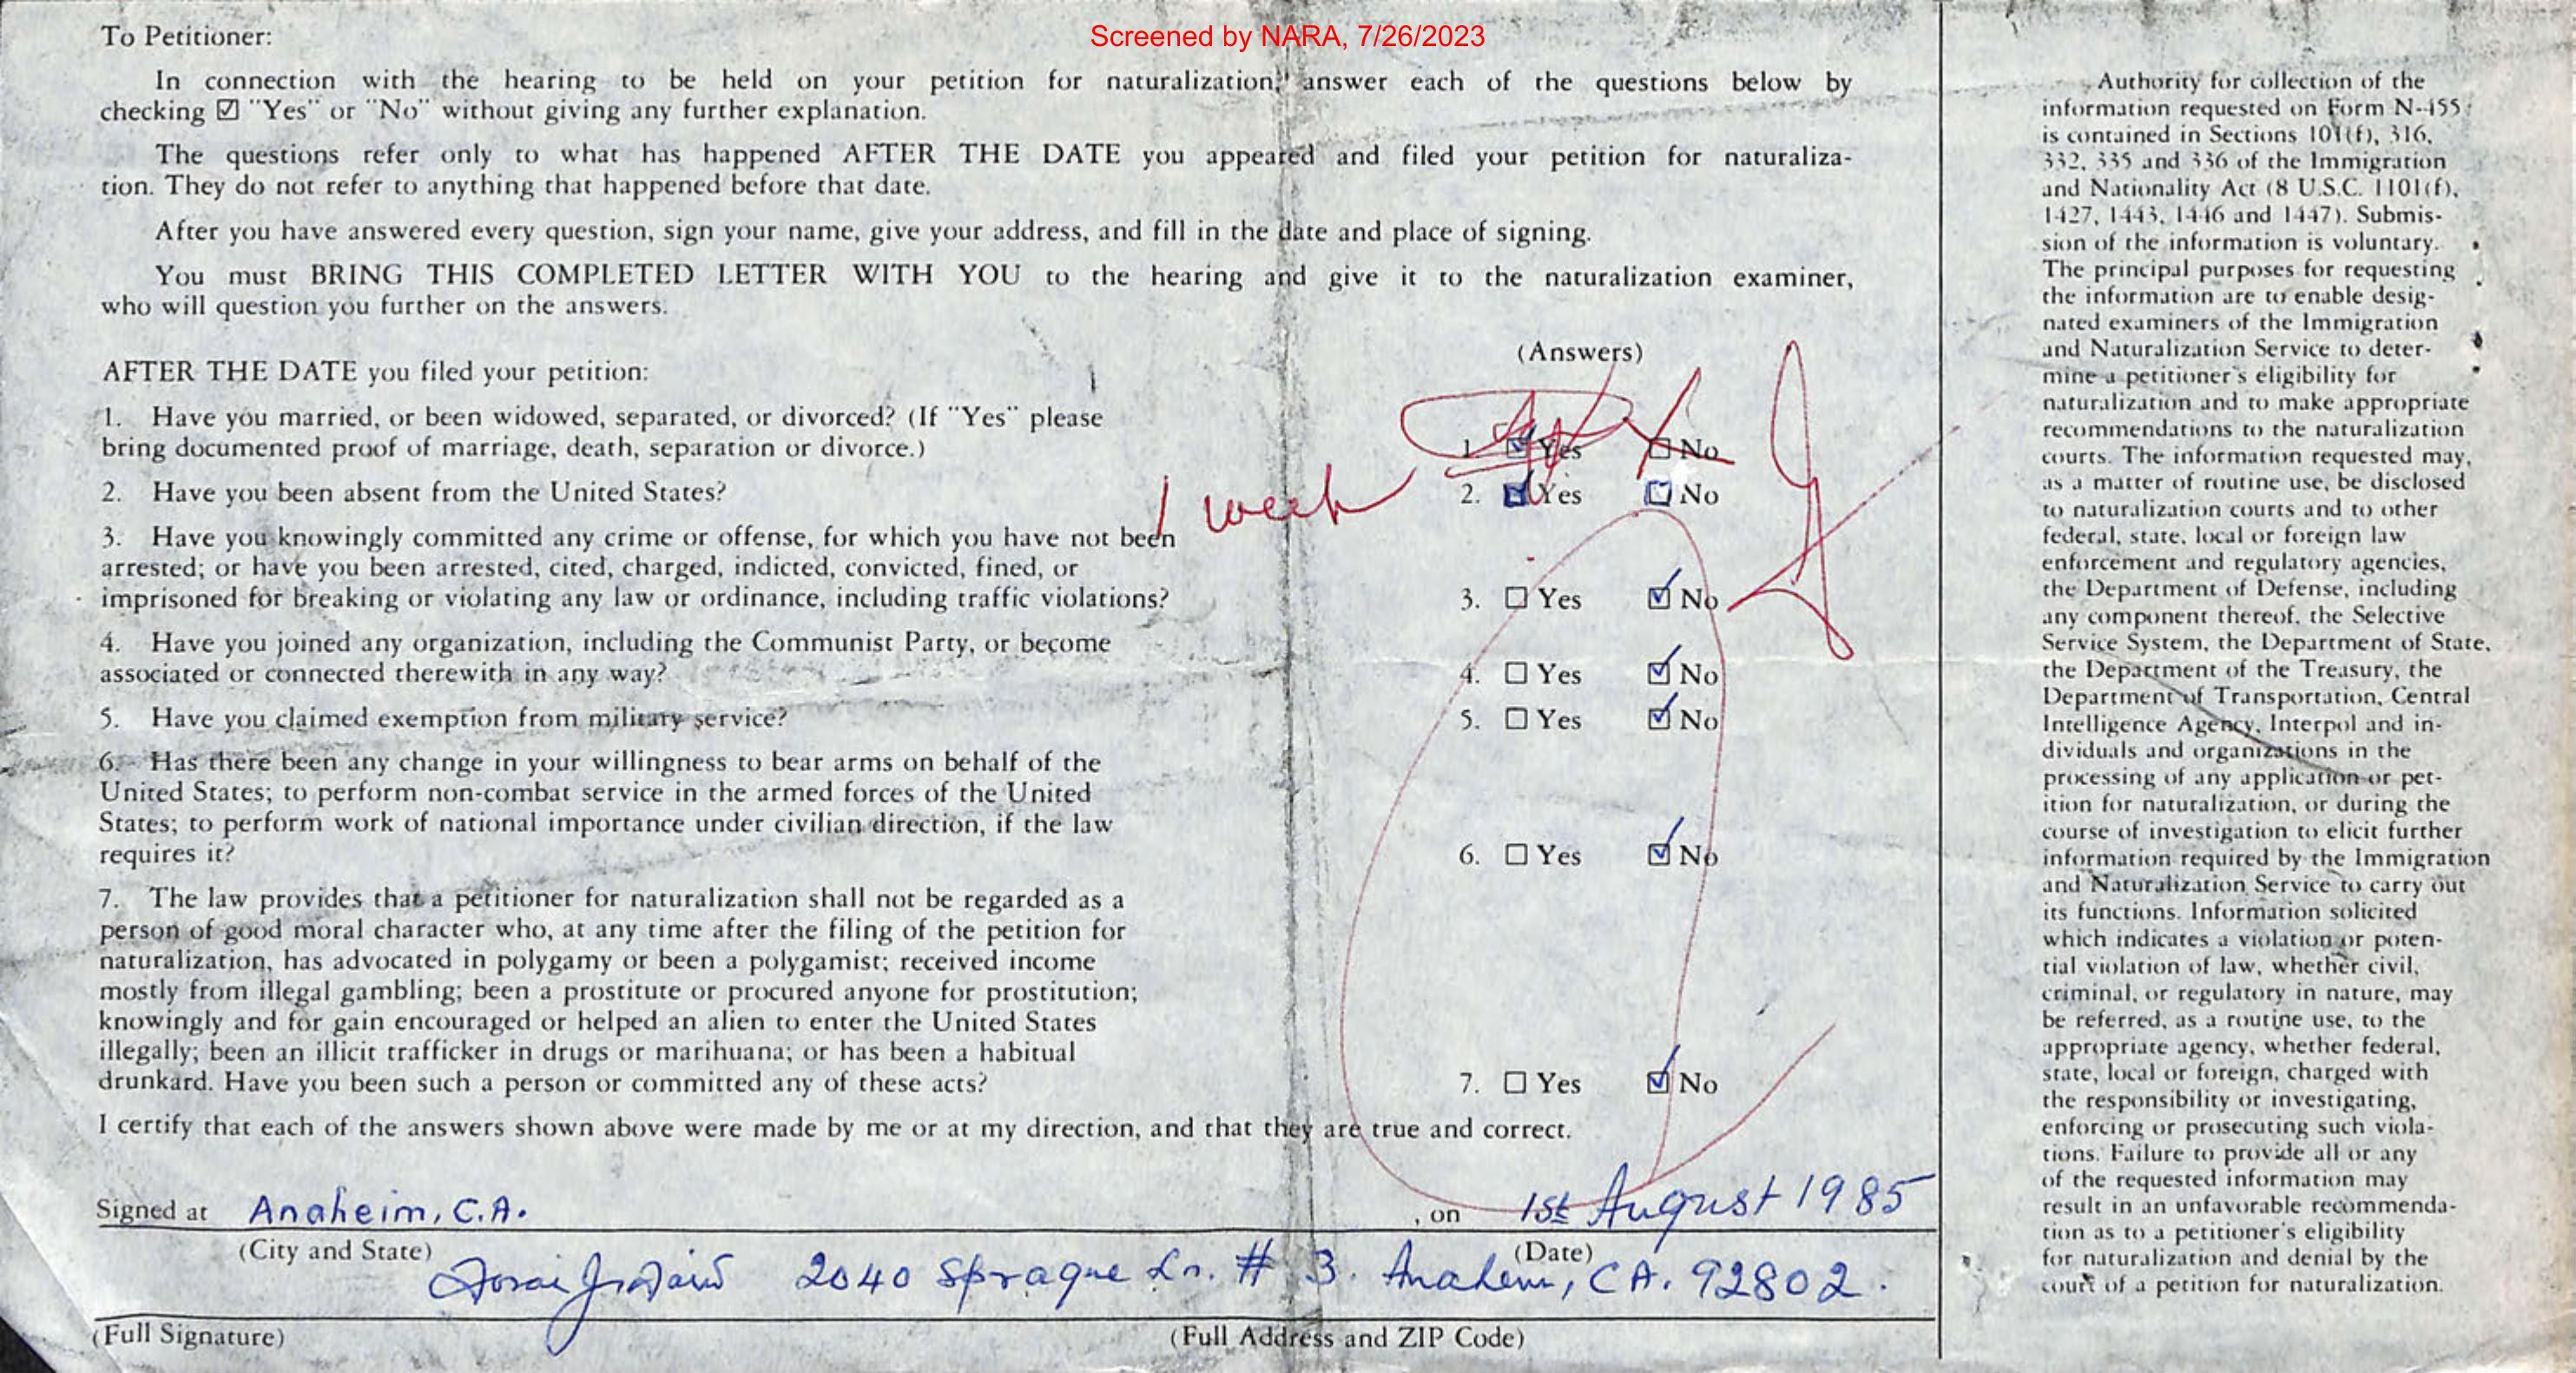 Screened by NARA, 7/26/2023
To Petitioner:
In connection with the hearing to be held on your petition for naturalization, answer each of the questions below by
checking ☑ "Yes" or "No" without giving any further explanation.
The questions refer only to what has happened AFTER THE DATE you appeared and filed your petition for naturaliza-
tion. They do not refer to anything that happened before that date.
After you have answered every question, sign your name, give your address, and fill in the date and place of signing.
You must BRING THIS COMPLETED LETTER WITH YOU to the hearing and give it to the naturalization examiner,
who will question you further on the answers.
(Answers)
AFTER THE DATE you filed your petition:
1. Have you married, or been widowed, separated, or divorced? (If "Yes" please
bring documented proof of marriage, death, separation or divorce.)
1. ☑ Yes ☐ No
2. Have you been absent from the United States?
1 week
2. ☑ Yes ☐ No
3. Have you knowingly committed any crime or offense, for which you have not been
arrested; or have you been arrested, cited, charged, indicted, convicted, fined, or
imprisoned for breaking or violating any law or ordinance, including traffic violations?
3. ☐ Yes ☑ No
4. Have you joined any organization, including the Communist Party, or become
associated or connected therewith in any way?
4. ☐ Yes ☑ No
5. Have you claimed exemption from military service?
5. ☐ Yes ☑ No
6. Has there been any change in your willingness to bear arms on behalf of the
United States; to perform non-combat service in the armed forces of the United
States; to perform work of national importance under civilian direction, if the law
requires it?
6. ☐ Yes ☑ No
7. The law provides that a petitioner for naturalization shall not be regarded as a
person of good moral character who, at any time after the filing of the petition for
naturalization, has advocated in polygamy or been a polygamist; received income
mostly from illegal gambling; been a prostitute or procured anyone for prostitution;
knowingly and for gain encouraged or helped an alien to enter the United States
illegally; been an illicit trafficker in drugs or marihuana; or has been a habitual
drunkard. Have you been such a person or committed any of these acts?
7. ☐ Yes ☑ No
I certify that each of the answers shown above were made by me or at my direction, and that they are true and correct.
Signed at Anaheim, C.A. , on 1st August 1985
(City and State) (Date)
2040 Sprague Ln. # 3. Anaheim, CA. 92802.
(Full Signature) (Full Address and ZIP Code)
Authority for collection of the
information requested on Form N-455
is contained in Sections 101(f), 316,
332, 335 and 336 of the Immigration
and Nationality Act (8 U.S.C. 1101(f),
1427, 1443, 1446 and 1447). Submis-
sion of the information is voluntary.
The principal purposes for requesting
the information are to enable desig-
nated examiners of the Immigration
and Naturalization Service to deter-
mine a petitioner's eligibility for
naturalization and to make appropriate
recommendations to the naturalization
courts. The information requested may,
as a matter of routine use, be disclosed
to naturalization courts and to other
federal, state, local or foreign law
enforcement and regulatory agencies,
the Department of Defense, including
any component thereof, the Selective
Service System, the Department of State,
the Department of the Treasury, the
Department of Transportation, Central
Intelligence Agency, Interpol and in-
dividuals and organizations in the
processing of any application or pet-
ition for naturalization, or during the
course of investigation to elicit further
information required by the Immigration
and Naturalization Service to carry out
its functions. Information solicited
which indicates a violation or poten-
tial violation of law, whether civil,
criminal, or regulatory in nature, may
be referred, as a routine use, to the
appropriate agency, whether federal,
state, local or foreign, charged with
the responsibility or investigating,
enforcing or prosecuting such viola-
tions. Failure to provide all or any
of the requested information may
result in an unfavorable recommenda-
tion as to a petitioner's eligibility
for naturalization and denial by the
court of a petition for naturalization.